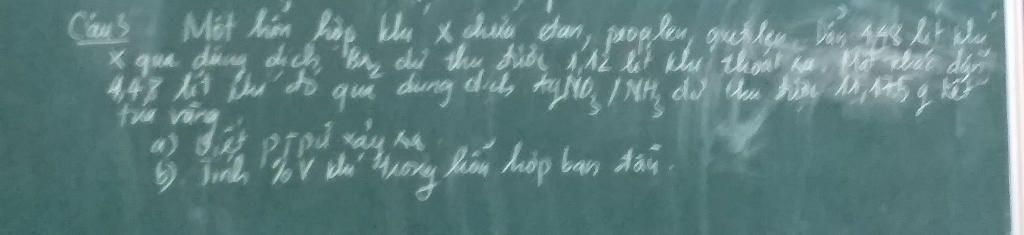 Câu 3 Một hỗn hợp khí X chứa etan, propilen, axetilen. Dẫn 4,48 lít khí
X qua dung dịch Br2 dư thu được 1,12 lít khí thoát ra. Mặt khác dẫn
4,48 lít khí đó qua dung dịch AgNO3/NH3 dư thu được g kết
tủa vàng
a) Viết ptpứ xảy ra
b) Tính %V khí trong hỗn hợp ban đầu.